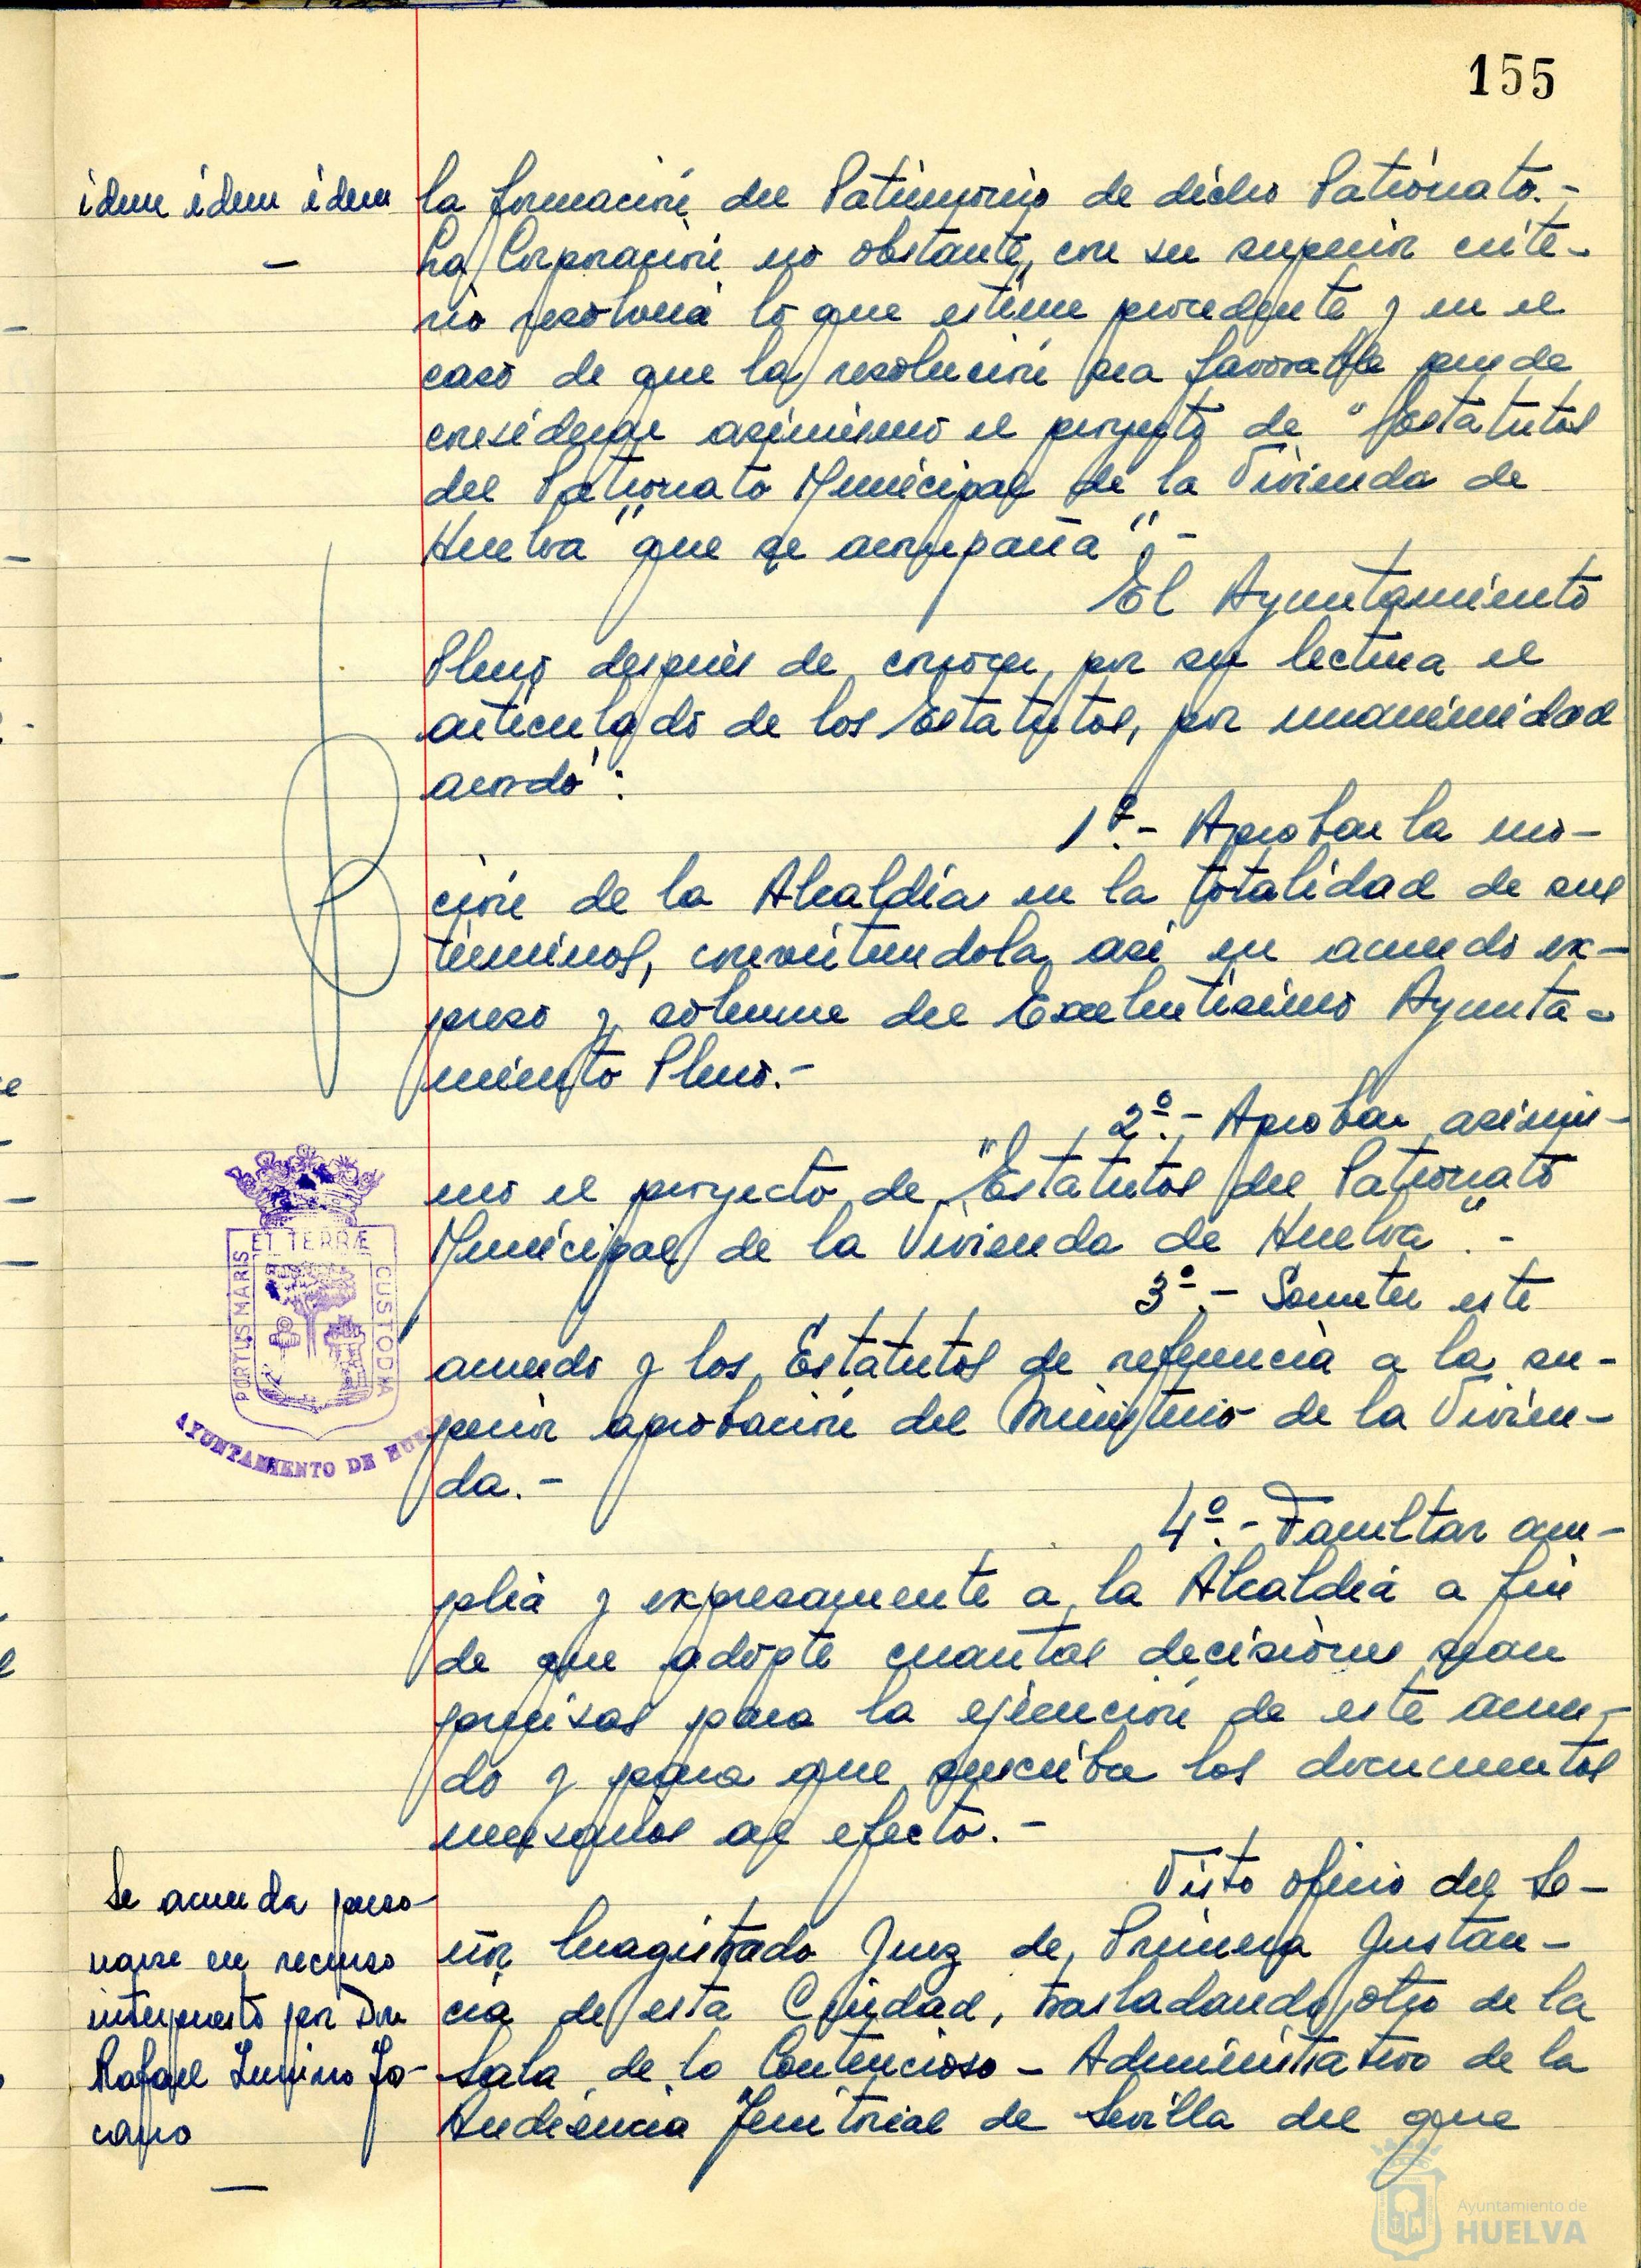 155
idem idem idem
la formación del Patrimonio de dicho Patronato.-
La Corporación no obstante, con su superior crite-
rio resolverá lo que estime procedente y en el
caso de que la resolución sea favorable puede
considerar asimismo el proyecto de "Estatutos
del Patronato Municipal de la Vivienda de
Huelva" que se acompaña".-
El Ayuntamiento
Pleno después de conocer por su lectura el
articulado de los Estatutos, por unanimidad
acordó:
1º.- Aprobar la mo-
ción de la Alcaldía en la totalidad de sus
términos, convirtiendola así en acuerdo ex-
preso y solemne del Excelentísimo Ayunta-
miento Pleno.-
2º.- Aprobar asimis-
mo el proyecto de "Estatutos del Patronato
Municipal de la Vivienda de Huelva".-
3º.- Someter este
acuerdo y los Estatutos de referencia a la su-
perior aprobación del Ministerio de la Vivien-
da.-
4º.- Facultar am-
plia y expresamente a la Alcaldía a fin
de que adopte cuantas decisiones sean
precisas para la ejecución de este acuer-
do y para que suscriba los documentos
necesarios al efecto.-
PORTUS MARIS
ET TERRÆ
CUSTODIA
AYUNTAMIENTO DE HUE
Se acuerda perso-
narse en recurso
interpuesto por Don
Rafael
Visto oficio del Se-
ñor Magistrado Juez de Primera Instan-
cia de esta Ciudad, trasladando otro de la
Sala de lo Contencioso-Administrativo de la
Audiencia Territorial de Sevilla del que
Ayuntamiento de
HUELVA